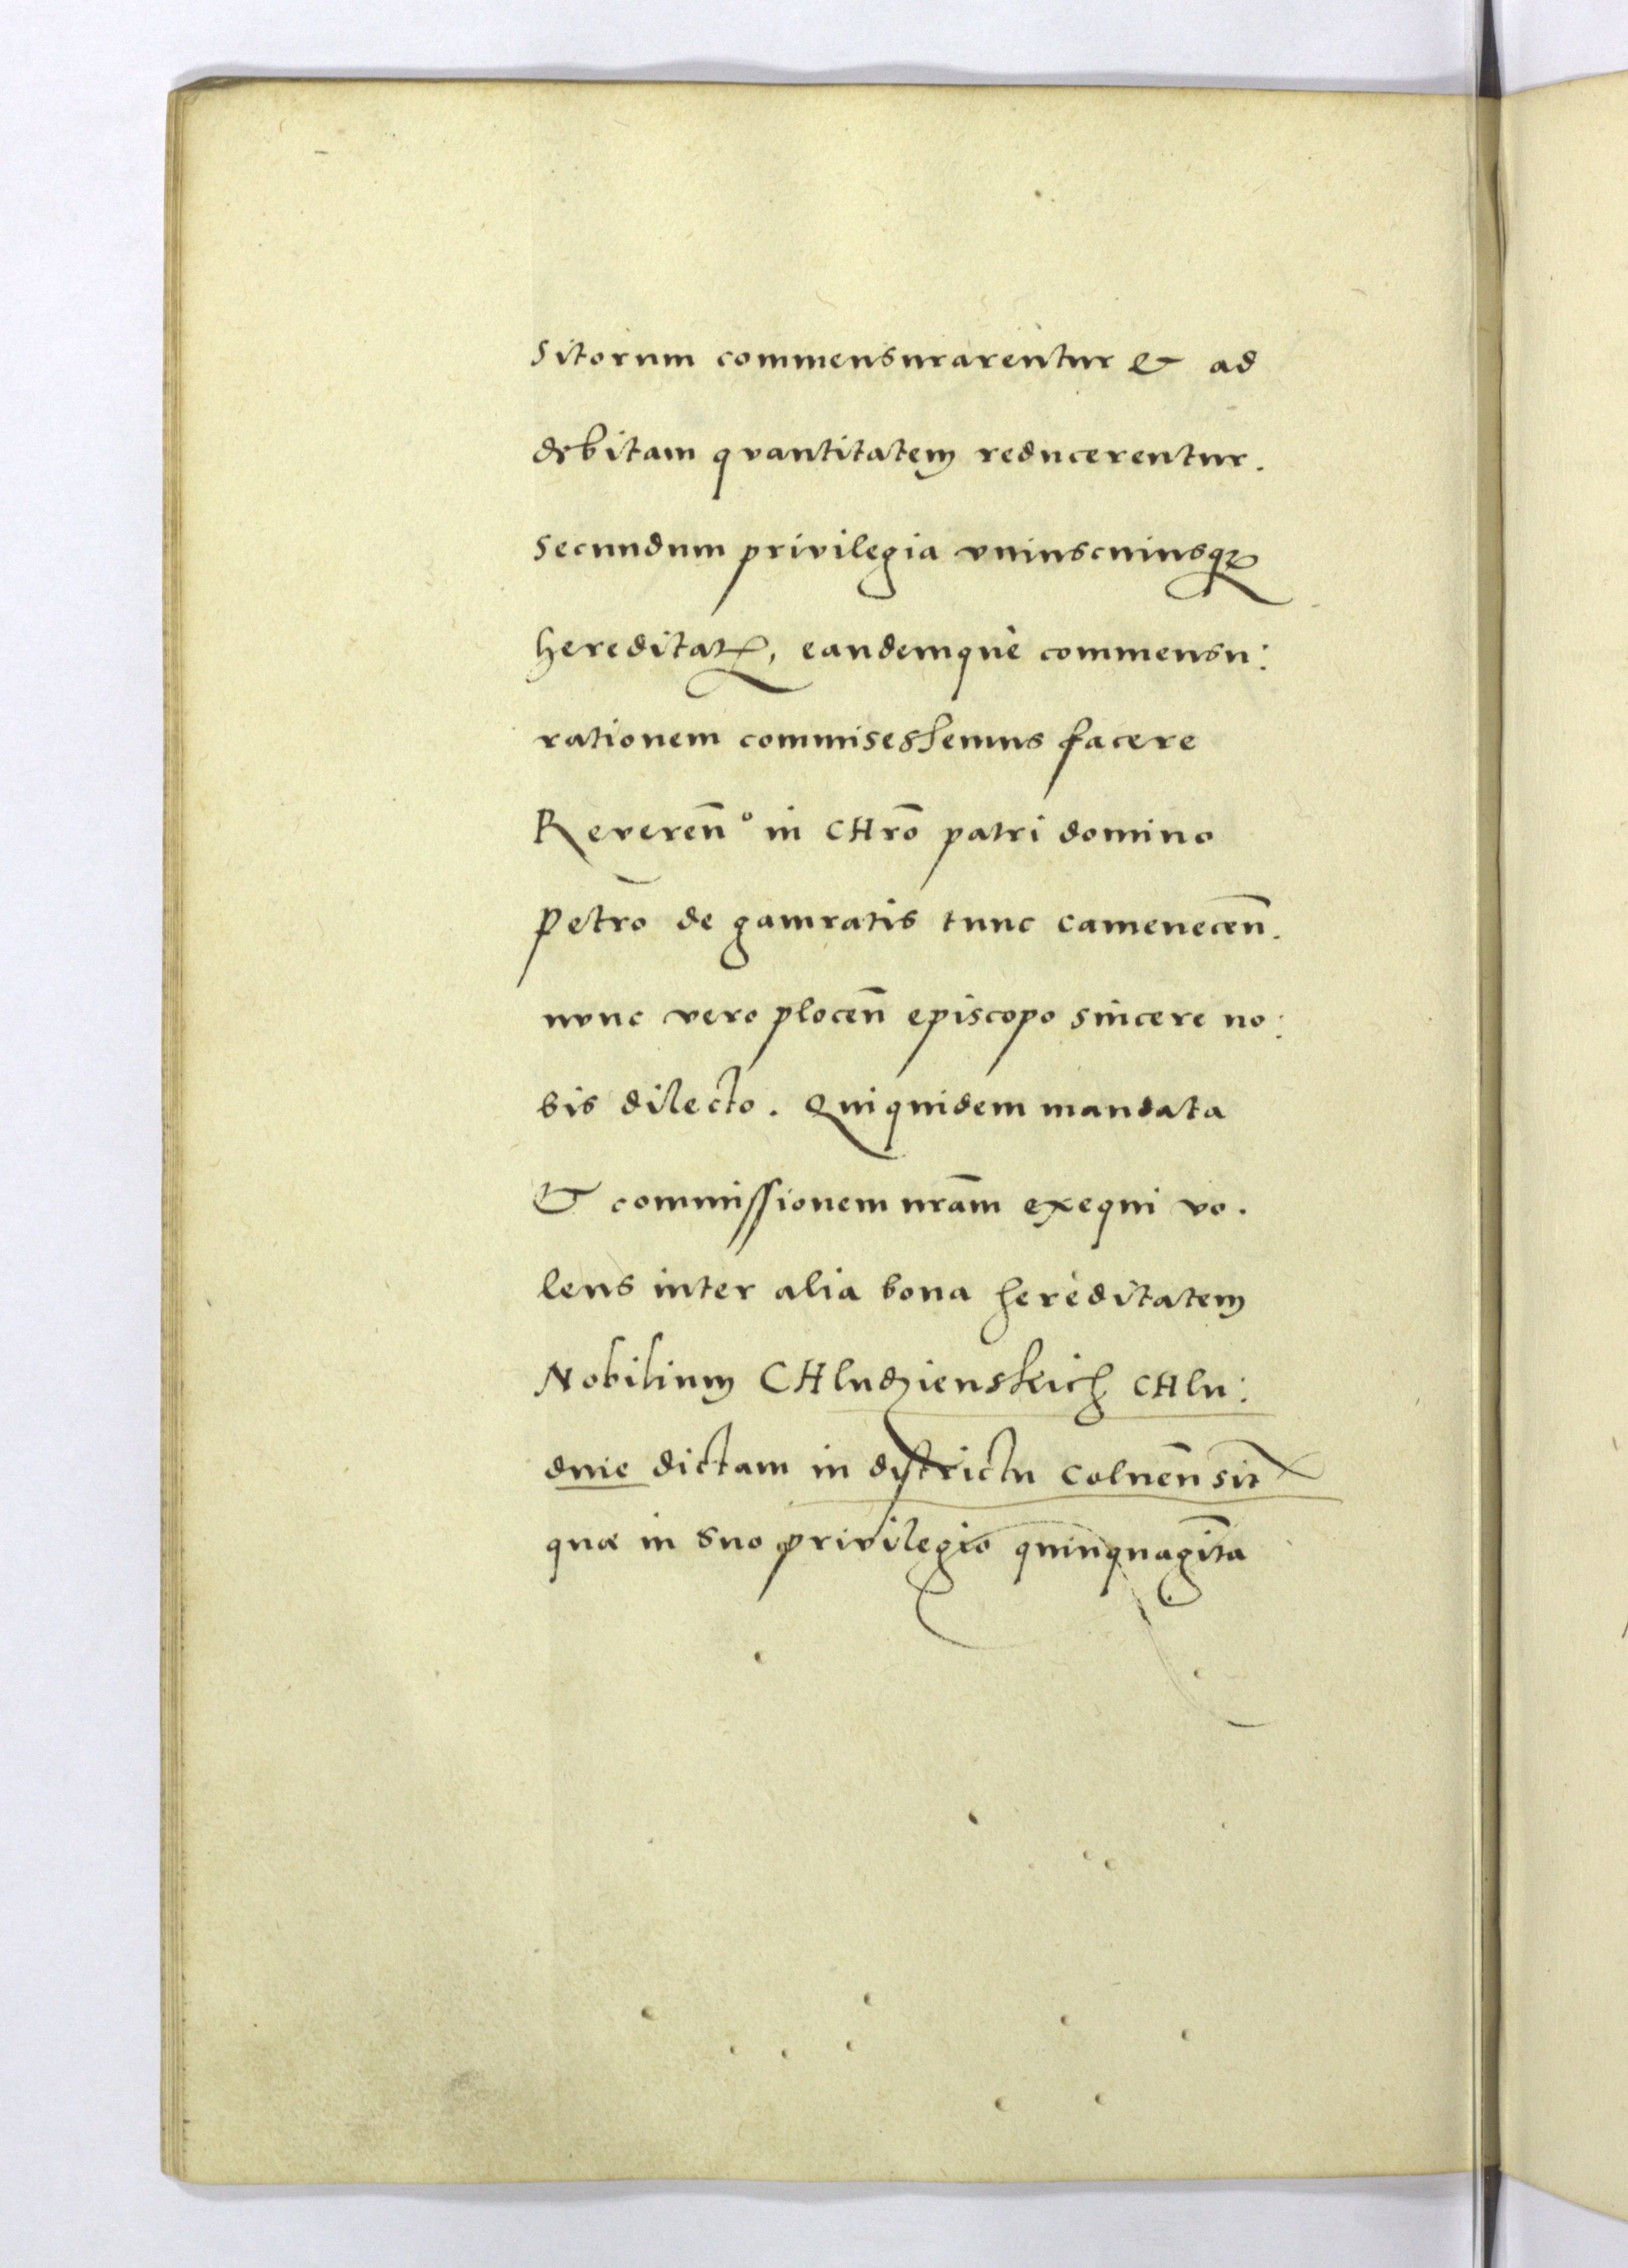 sitorum commensurarentur & ad
debitam quantitatem reducerentur.
secundum privilegia vniuscuiusqꝫ
hereditatꝫ, eandemquè commensu:
rationem commisessemus facere
Reveren̄º in CHrō patri domino
Petro de gamratis tunc camenecen̄.
nvnc vero plocen̄ episcopo sincere no:
bis dilecto. Quiquidem mandata
& commissionem nrām exequi vo.
lens inter alia bona hereditatem
Nobilium CHludzienskich CHlu:
dnie dictam in districtu Colnen̄ sit
quæ in suo privilegio quinquagīta